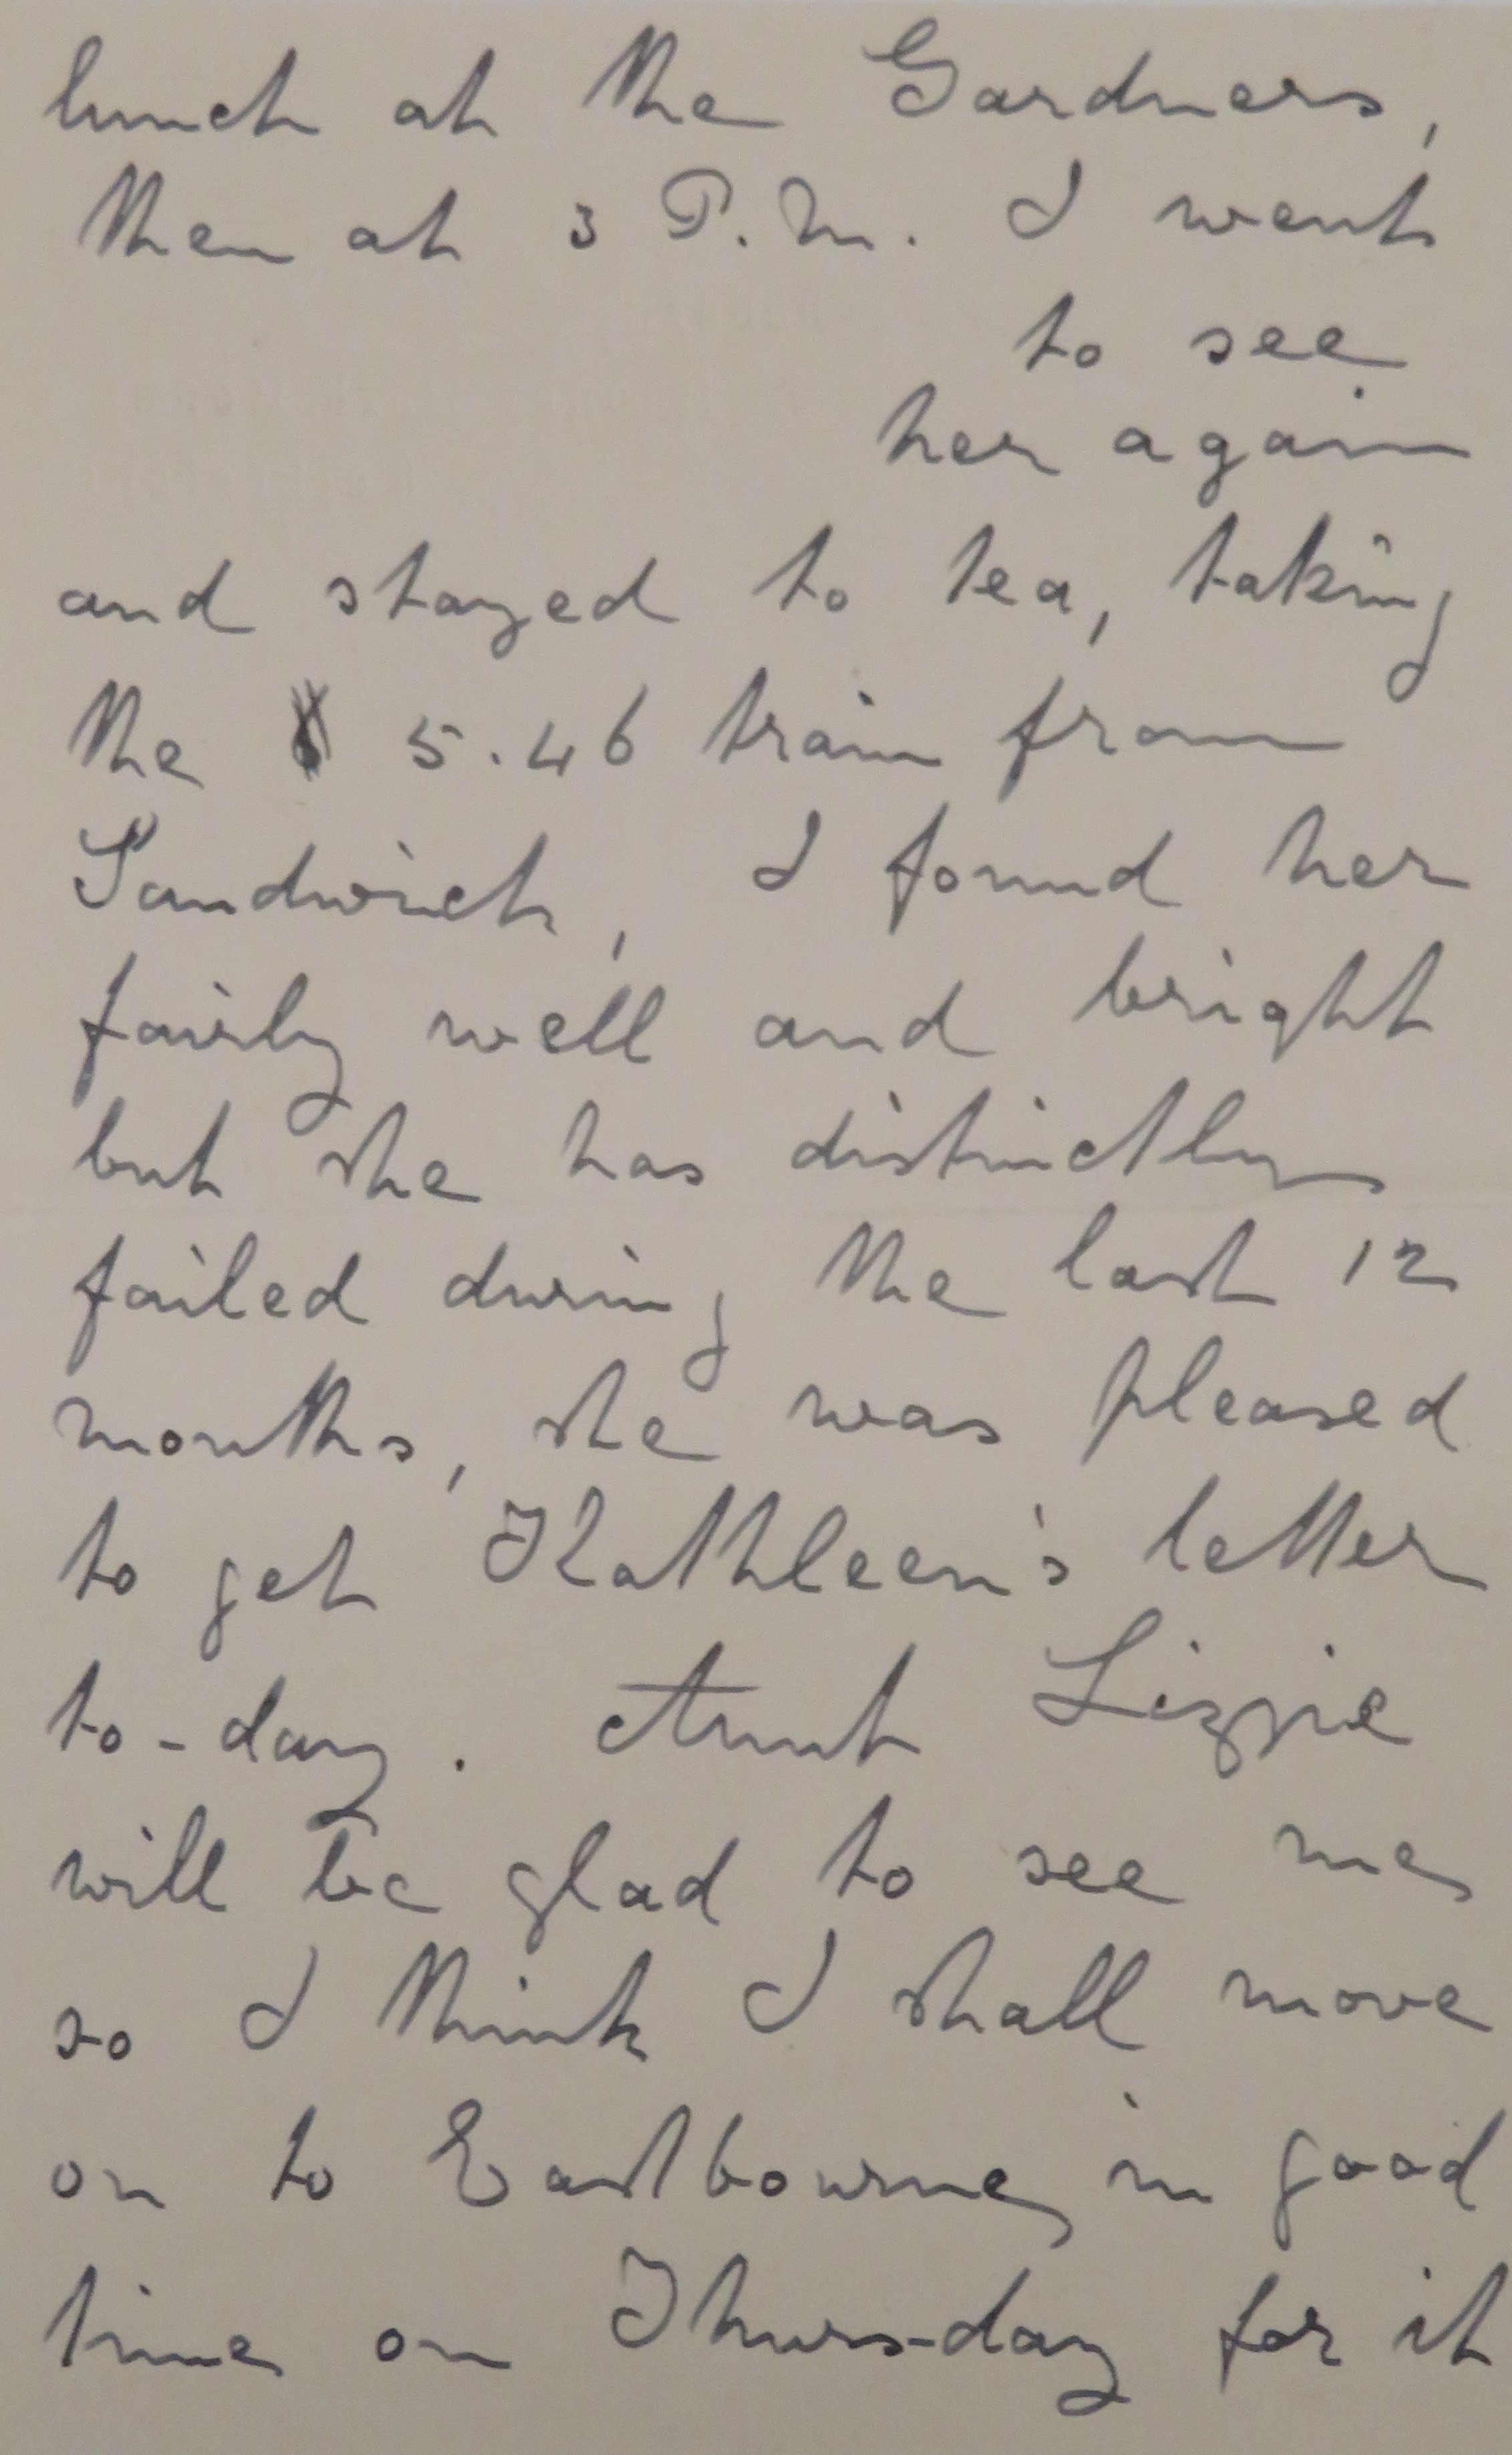 lunch at the Gardners,
then at 3 P.m. I went
to see
her again
and stayed to tea, taking
the 5.46 train from
Sandwich, I found her
fairly well and bright
but she has distinctly
failed during the last 12
months, she was pleased
to get Kathleen's letter
to-day. Aunt Lizzie
will be glad to see me
so I think I shall move
on to Eastbourne in good
time on Thursday for it